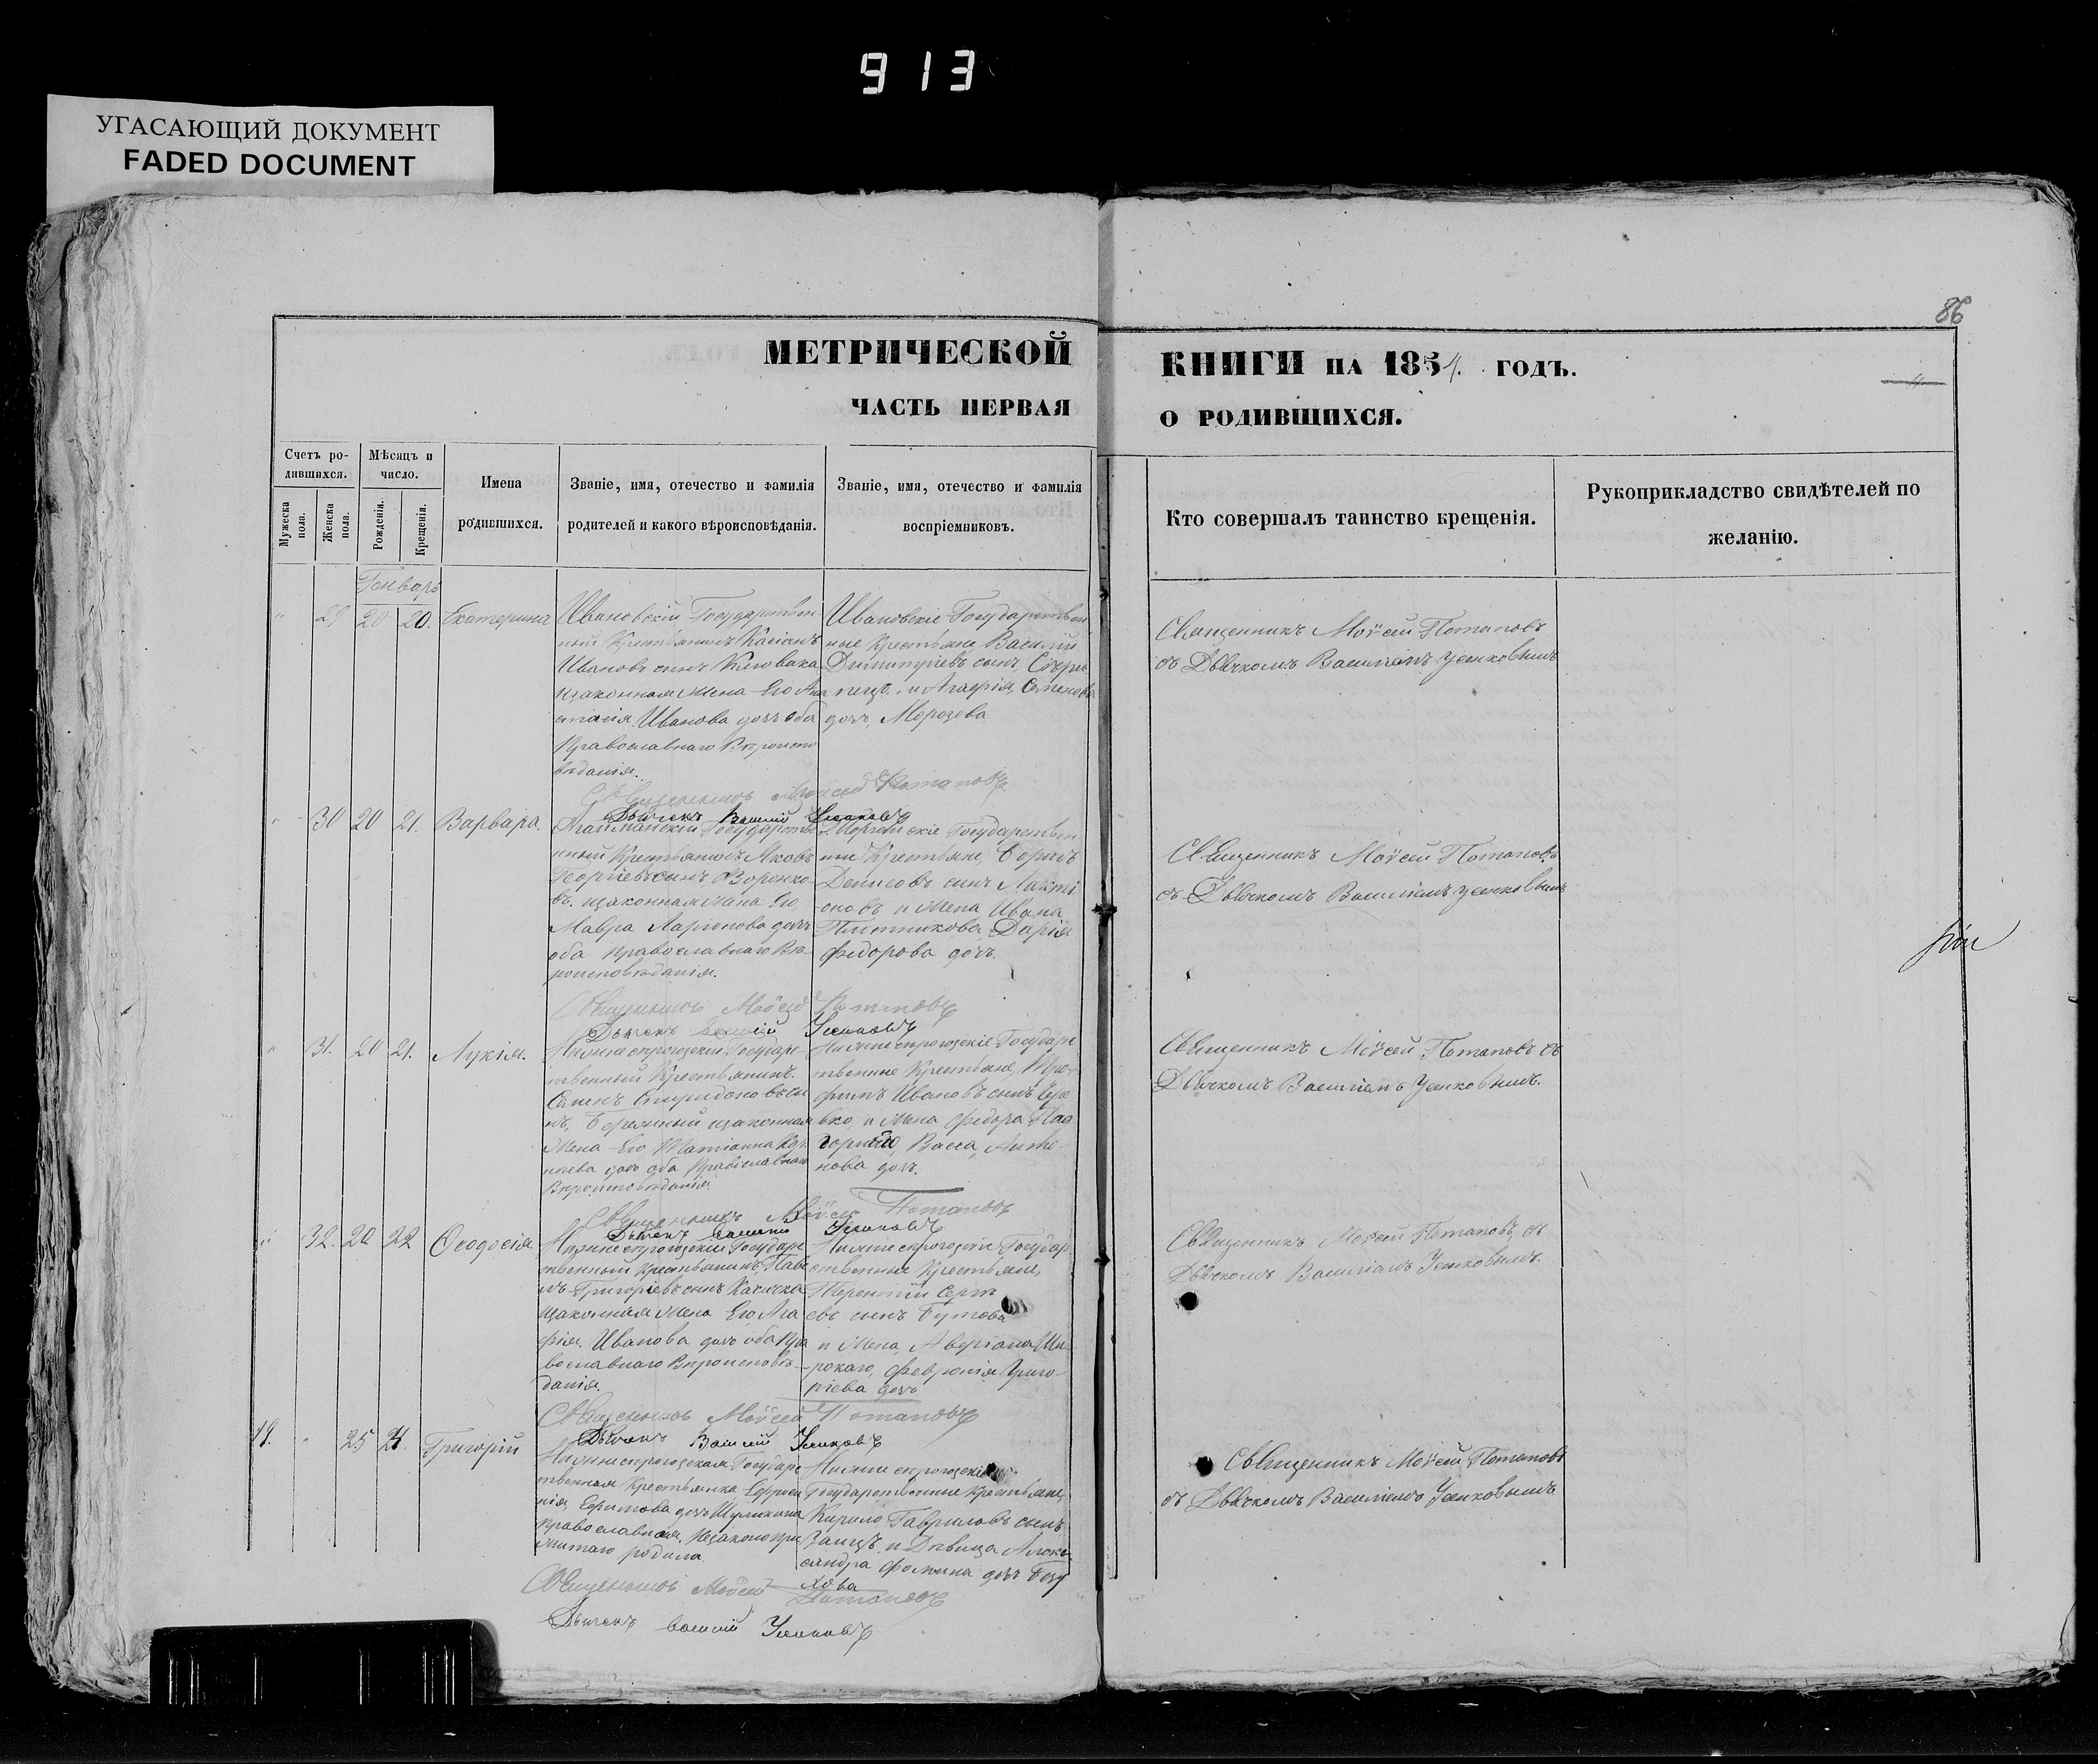 913
УГАСАЮЩИЙ ДОКУМЕНТ
FADED DOCUMENT
86
МЕТРИЧЕСКОЙ
ЧАСТЬ ПЕРВАЯ
КНИГИ НА 1854. ГОДЪ.
О РОДИВШИХСЯ.
Счетъ ро-
дившихся.
Мужеска
пола.
Женска
пола.
Мѣсяцъ и
число.
Рожденія.
Крещенія.
Имена
родившихся.
Званіе, имя, отечество и фамилія
родителей и какого вѣроисповѣданія.
Званіе, имя, отечество и фамилія
воспріемниковъ.
Кто совершалъ таинство крещенія.
Рукоприкладство свидѣтелей по
желанію.
Генварь
" 29 20 20. Екатерина
Ивановскій Государствен
ный Крестьянинъ Касіанъ
Ивановъ сынъ
изаконная Жена Его Ана
стасія Иванова дочь оба
Православнаго Вѣроиспо
вѣданія.
Ивановскіе Государствен
ные Крестьяне Василій
Димитріевъ сынъ
и Агафія Семенова
дочь Морозова
Священникъ Моѵсей Потаповъ
съ Дьячкомъ Василіемъ Усиковымъ
Священникъ Моѵсей Потаповъ
Дьячекъ Василій Усиковъ
" 30 20 21. Варвара.
Агайманскій Государстве
нный Крестьянинъ Яковъ
Георгіевъ сынъ Воренко-
въ. изаконная Жена Его
Мавра Ларіонова дочь
оба православнаго Вѣ-
роисповѣданія.
Государствен
ные Крестьяне,
Денисовъ сынъ Лакті
оновъ и Жена Ивана
Плотникова Дарія
Федорова дочь.
Священникъ Моѵсей Потаповъ
съ Дьячкомъ Василіемъ Усиковымъ
Священникъ Моѵсей Потаповъ
Дьячекъ Василій Усиковъ
" 31. 20 21. Лукія.
Нижнесѣрогозскій Государс-
твенный Крестьянинъ
Семенъ Спиридоновъ сы
нъ, Бережный изаконная
Жена Его Татіанна
дочь оба Православнаго
Вѣроисповѣданія.
Нижнесѣрогозскіе Государс
твенные Крестьяне, Тро-
фимъ Ивановъ сынъ
и Жена Федора Под
Васса,
нова дочь.
Священникъ Моѵсей Потаповъ съ
Дьячкомъ Василіемъ Усиковымъ.
Священникъ Моѵсей Потаповъ
Дьячекъ Василій Усиковъ
" 32. 20 22 Ѳеодосія
Нижнесѣрогозскій Государс
твенный Крестьянинъ Паве
лъ Григоріевъ сынъ
изаконная Жена Его Ага
фія, Иванова дочь оба Пра
вославнаго Вѣроисповѣ-
данія.
Нижнесѣрогозскіе Государ
ственные Крестьяне,
Терентій Сергѣ
евъ сынъ Бутовъ
и Жена Аверіана Ши-
рокаго, Февронія Григо-
ріева дочь
Священникъ Моѵсей Потаповъ, съ
Дьячкомъ Василіемъ Усиковымъ.
Священникъ Моѵсей Потаповъ
Дьячекъ Василій Усиковъ
" 25 Григорій
Нижнесѣрогозская Государс
твенная Крестьянка Ефроси
нія Ефимова дочь
православная. Незаконопри
житаго родила.
Нижнесѣрогозскіе
Государственные Крестьяне,
Кирило Гавриловъ сынъ
Заицъ и Дѣвица Алекс
андра Фомина дочь
хова
Священникъ Моѵсей Потаповъ
съ Дьячкомъ Василіемъ Усиковымъ
Священникъ Моѵсей Потаповъ
Дьячекъ Василій Усиковъ